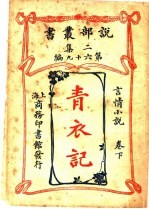 說部叢書
二集
第六十九編
言情小說
青衣記
卷下
上海商務印書館發行